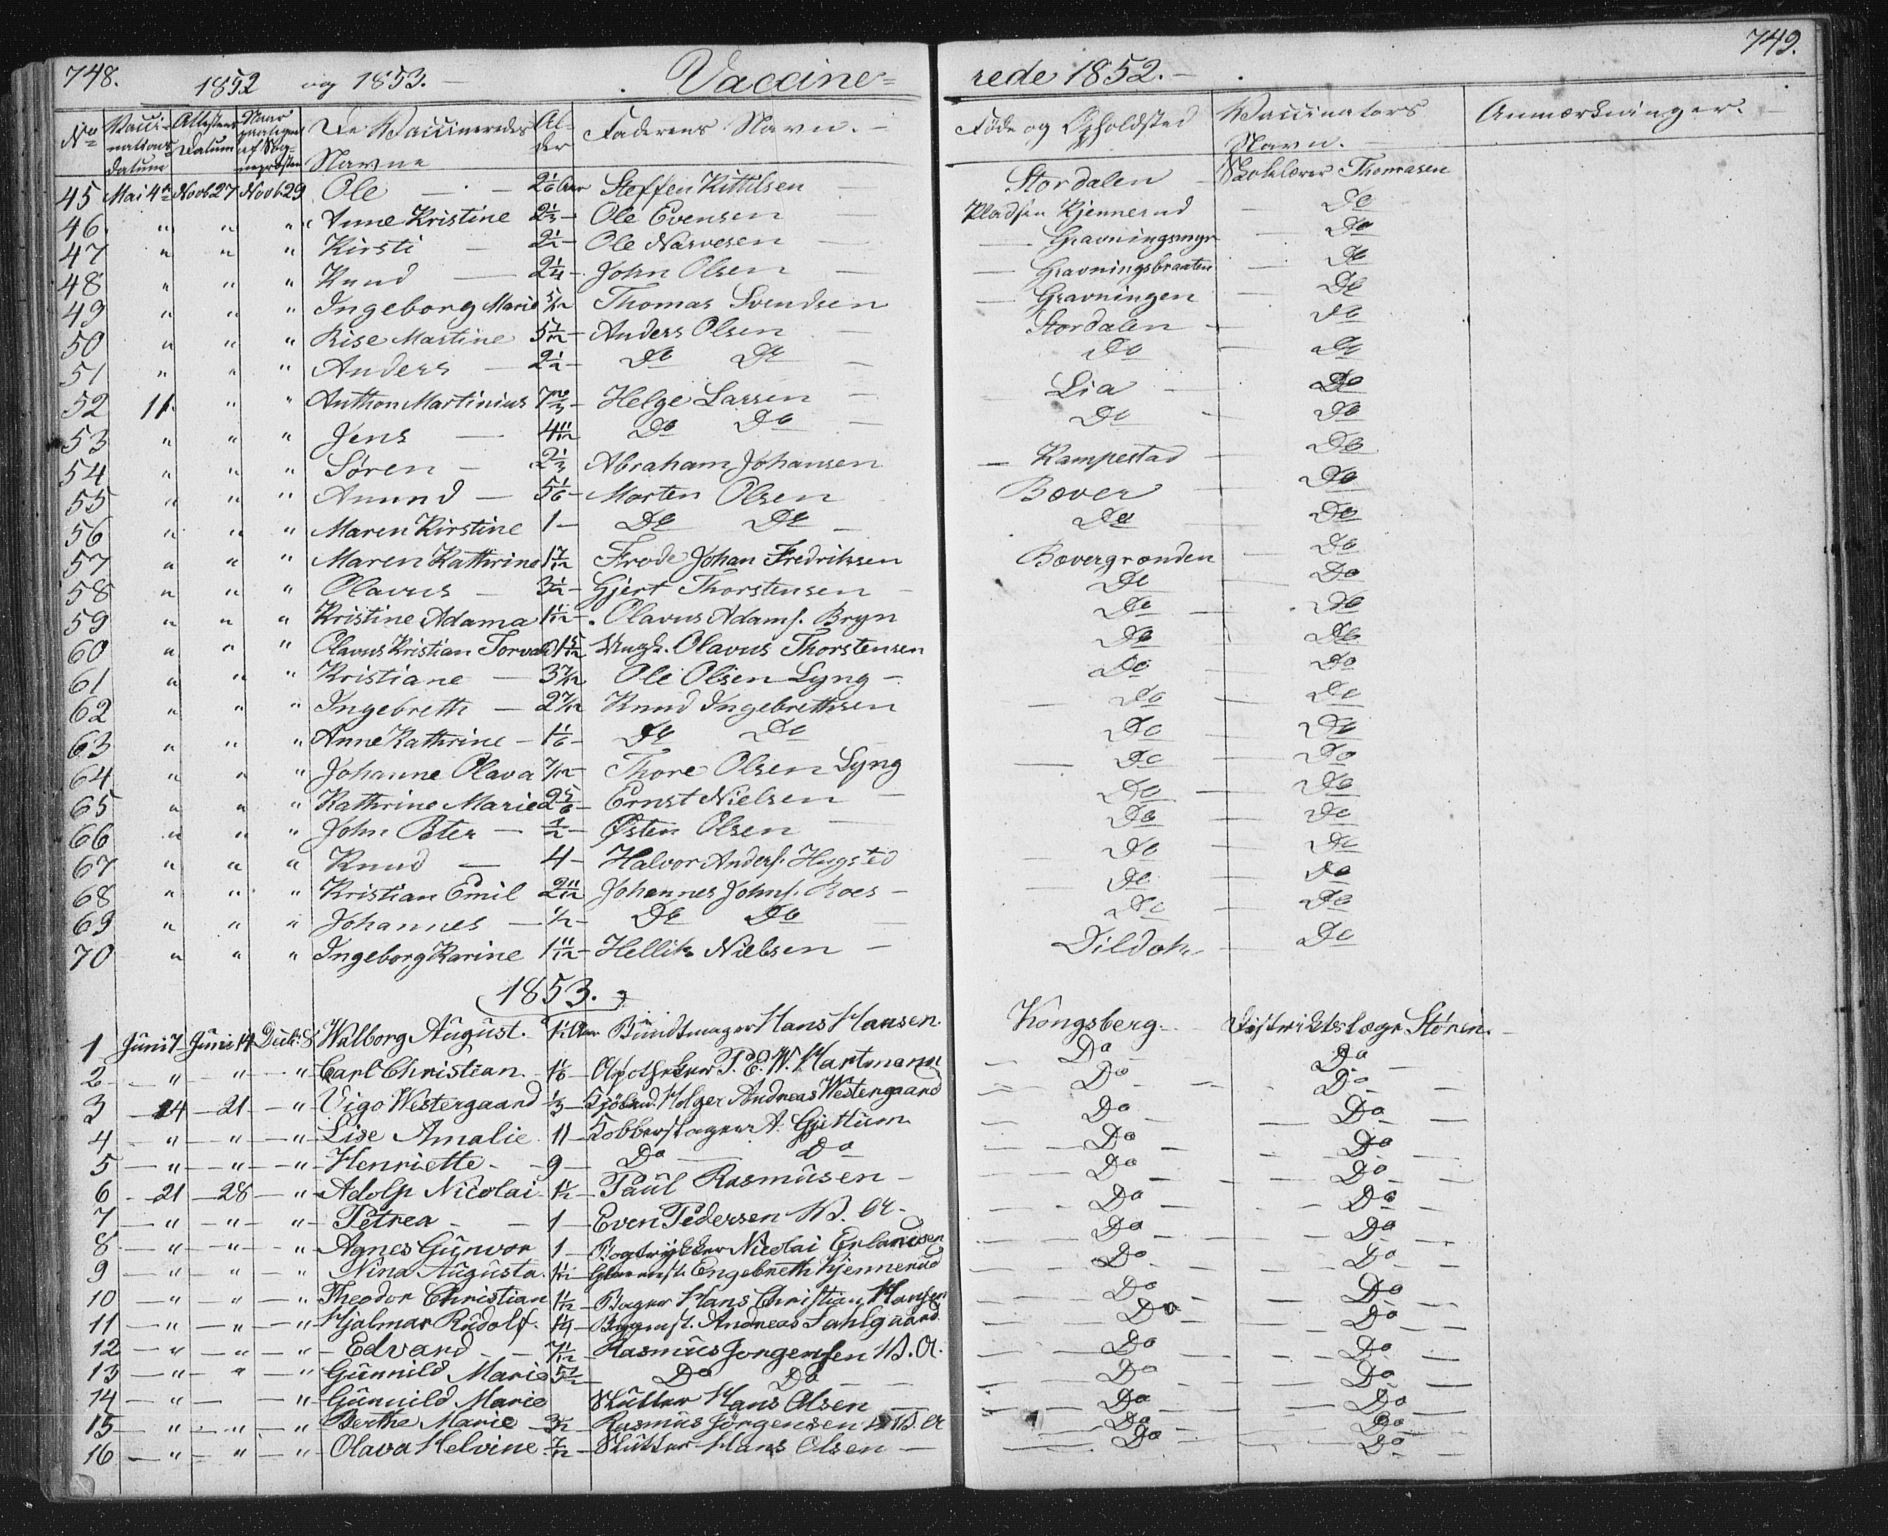 748. 1852 og 1853. – Vaccine= rede 1852. – 749.
No Vacci-nations datum Attestens Datum Naar modtagen af Sog-nepræsten De Vaccineredes Navne Al-der Faderens Navn. – Føde og Opholdsted Vaccinators Navn. Anmærkninger. –
45 Mai 4de Novb 27 Novb 29 Ole – 2 1/6 Aar Steffen Kittilsen Stordalen – Skolelærer Thomasen
46 " " " Anne Kristine 2 1/3 – Ole Evensen Pladsen Kjennerud – Do
47 " " " Kirsti – 2 1/2 – Ole Narvesen – – Gravningsmyr – Do
48 " " " Knud – 2 1/4 – John Olsen – – Gravningsbraaten – Do
49 " " " Ingeborg Marie 5/12 Thomas Svendsen – Gravningen – Do
50 " " " Lise Martine 5 7/12 – Anders Olsen – Stordalen – Do
51 " " " Anders – 2 1/2 – Do Do – Do – Do
52 11 " " Anthon Martinius 7 2/3 – Helge Larsen – Lia – Do
53 " " " Jens – 4 11/12 Do Do – Do – Do
54 " " " Søren – 2 1/3 Abraham Johansen – Kampestad – Do
55 " " " Amund – 5 1/6 – Morten Olsen Bæver – Do
56 " " " Maren Kirstine 1 – Do Do – Do – Do
57 " " " Maren Kathrine 1 7/12 Frode Johan Fredriksen Bævergrænden – Do
58 " " " Olavus – 3 1/2 – Gjert Thorstensen – Do – Do
59 " " " Kristine Adama 1 1/12 – Olavus Adams. Bryn Do – Do
60 " " " Olavus Kristian Torvald 1 5/12 Ungk. Olavus Thorstensen Do – Do
61 " " " Kristiane – 3 7/12 Ole Olsen Lyng – Do – Do
62 " " " Ingebreth – 2 7/12 Knud Ingebrethsen – Do – Do
63 " " " Anne Kathrine – 1 1/6 – Do Do – Do – Do
64 " " " Johanne Olava 7/12 – Thore Olsen Lyng – Do – Do
65 " " " Kathrine Marie 2 5/6 – Ernst Nielsen – Do – Do
66 " " " John Peter – 1/2 – Østen Olsen – Do – Do
67 " " " Knud – 4 – Halvor Anders. Hugsted – Do – Do
68 " " " Kristian Emil 2 11/12 Johannes Johns. Roes – – Do – Do
69 " " " Johannes – 1/2 – Do Do – Do – Do
70 " " " Ingeborg Karine 1 11/12 – Hellik Nielsen – – Do
1853.
1 Juni 7 Juni 14 Decb: 8 Walborg August. Aar Bundtmager Hans Hansen Kongsberg – Distriktslæge Stören. –
2 – " – " – " Carl Christian. 1 1/6 – Apotheker P. E. W. Hartmann Do – Do
3 – 14 – 21 – " – Vigo Westergaard 1/3 – Holger Andreas Westergaard – Do – Do –
4 – " – " – " – Lise Amalie. 11 – A. Gjethum – Do – – Do –
5 – " – " – " – Henriette. – 9 – Do – Do – Do – – Do –
6 – 21 – 28 – " – Adolp Nicolai – Paul Rasmusen – – Do – – Do –
7 – " – " – " – Petrea – – 1 – Even Pedersen B. A. – – Do – – Do –
8 – " – " – " – Agnes Gunvor 1 – Bogtrykker Nicolai Erlandsen – Do – – Do –
9 – " – " – " – Nina Augusta. 1 1/12 – Engebreth Kjennerud – Do – – Do –
10 – " – " – " Theodor Christian 11/12 – Bager Hans Christian Hansen – Do – – Do –
11 – " – " – " – Hjalmar Rudolf. 1/4 – Andreas Sahlgaard. – Do – – Do –
12 – " – " – " – Edvard – – 7 1/12 – Rasmus Jorgensen B. A. – Do – – Do –
13 – " – " – " – Gunnild Marie 5 1/2 – Do Do – – Do – – Do –
14 – " – " – " – Gunnild Marie Skutter Hans Olsen – – Do – – Do –
15 – " – " – " – Berthe Marie – 3/12 – Rasmus Jörgensen B. A – Do – – Do –
16 – " – " – " – Olava Helvine – 7/12 – Skutter Hans Olsen – – Do – – Do –